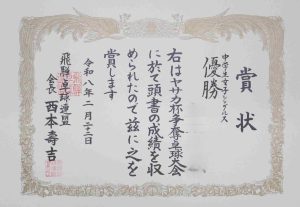 賞状
中学生女子シングルス
優勝
右はヤサカ杯争奪卓球大会
に於て頭書の成績を収
められたので茲に之を
賞します
令和八年二月二十二日
飛騨卓球連盟
会長 西本寿吉